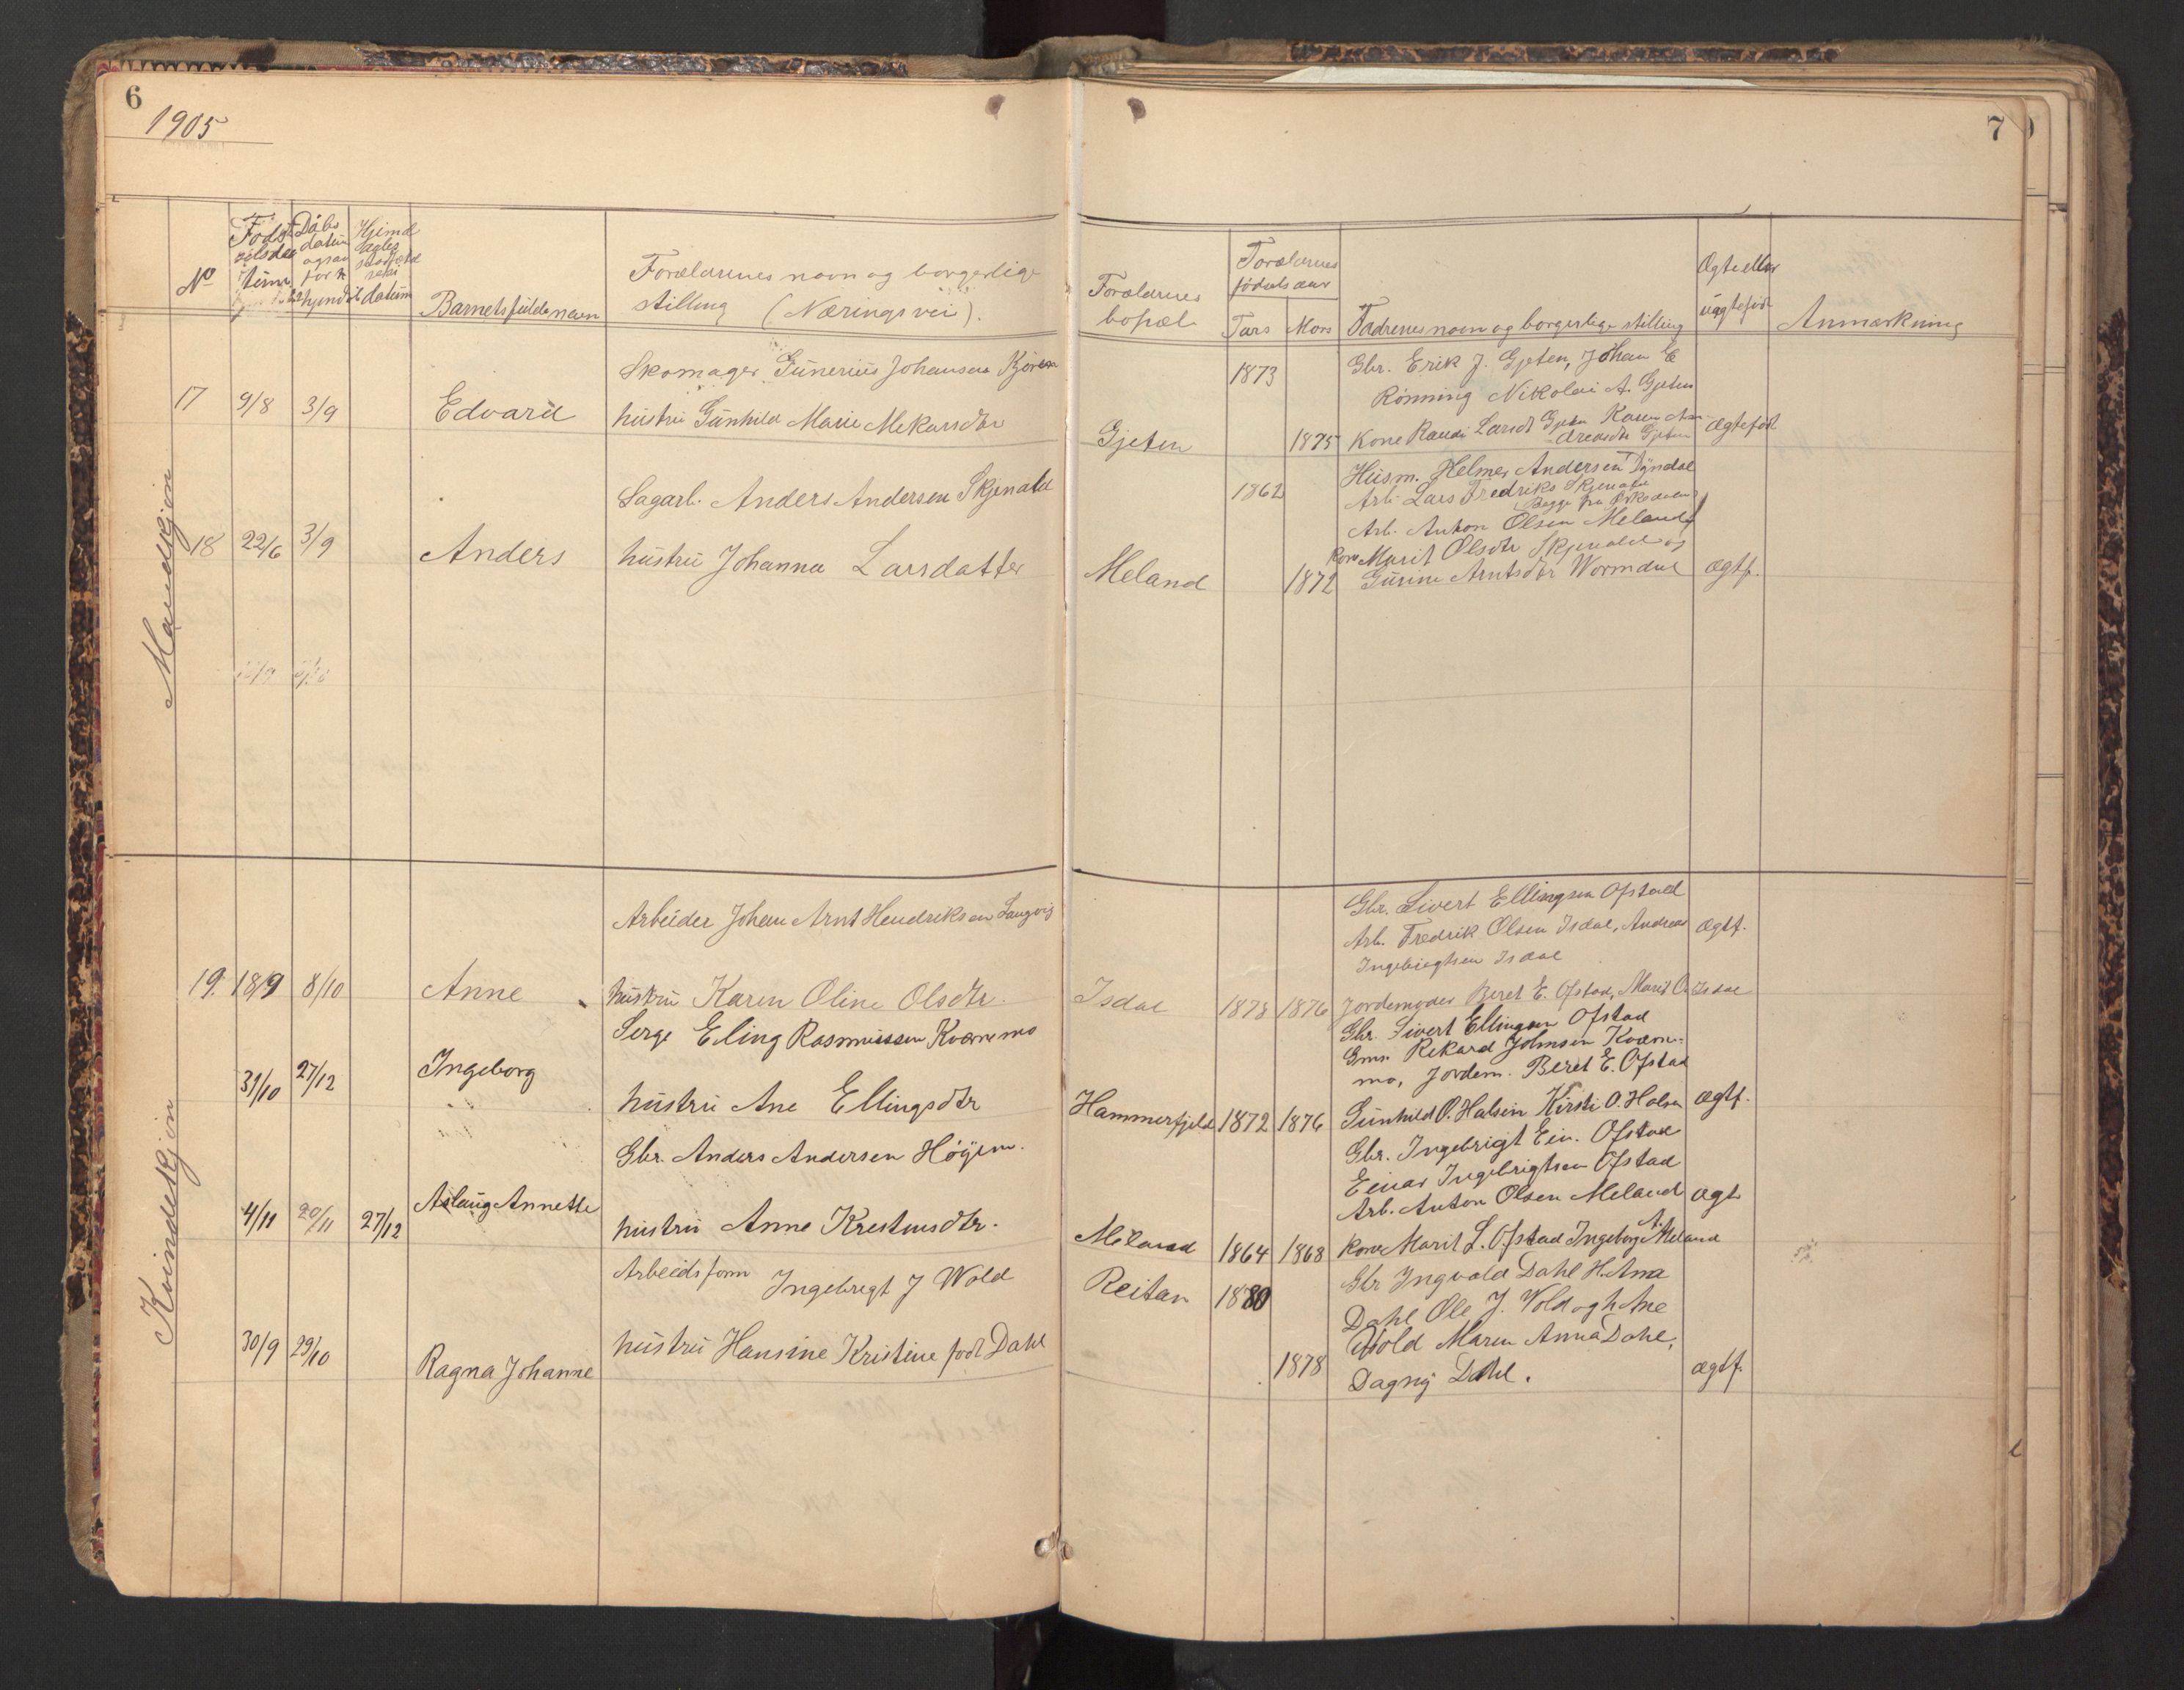 6
1905
No
Fødselsdatum
Daabsdatum
Hjemdaabs
datum
Barnets fulde navn
Forældrenes navn og borgerlige
stilling (Næringsvei).
Mandkjøn
Skomager Gunerius Johansen Kjøren
17 9/8 3/9 Edvard hustru Gunhild Marie Mekarsdtr
Sagarb. Anders Andersen Skjenald
18 22/6 3/9 Anders hustru Johanna Larsdatter
Kvindekjøn
Arbeider Johan Arnt Hendriksen Langvig
19. 18/9 8/10 Anne hustru Karen Oline Olsdtr.
Serge Eling Rasmussen Kværnmo
31/10 27/12 Ingeborg
hustru Ane Ellingsdtr
Gbr. Anders Andersen Høyem.
4/11 20/11 27/12 Aslaug Annette
hustru Anne Krestensdtr.
Arbeidsform Ingebrigt J Wold
30/9 29/10 Ragna Johanne hustru Hansine Kristine født Dahl
7
Forældrenes
bopæl
Forældrenes
fødselsaar
Fars Mors
Fadrenes navn og borgerlige stilling
Ægte eller
uægtefødt
Anmærkning
1873 Gbr. Erik J. Gjeten, Johan E
Rønning Nikolai A. Gjeten
Gjeten 1875 Kone Randi Larsdt Gjeten Karen An-
dreasdtr Gjeten ægtefødt
1862 Husm. Helmer Andersen Dyndal
Arb. Lars Fredriks Skjenald
Begge fra Orkedalen
Arb. Anton Olsen Meland
Kone Marit Olsdtr Skjenald og
Meland 1872 Gurine Arntsdtr Wormdal ægtf.
Gbr. Sivert Ellingsen Ofstad
Arb. Fredrik Olsen Isdal, Andreas ægtf.
Ingebrigtsen Isdal
Isdal 1878 1876 Jordemoder Beret E. Ofstad, Marit O. Isdal
Gbr. Sivert Ellingsen Ofstad
Gmr. Rekard Johnsen Kværn-
mo, Jordem. Beret E. Ofstad
Hammerfjeld 1872 1876 Gunhild O. Halsen Kirsti O. Halsen ægtf.
Gbr. Ingebrigt Ein. Ofstad
Einar Ingebrigtsen Ofstad
Arb. Anton Olsen Meland ægt
Meland 1864 1868 Kone Marit L. Ofstad Ingeborg A. Meland
Reitan 1880 Gbr Ingvald Dahl H. Anna
Dahl Ole J. Wold og h Ane
Wold Maren Anna Dahl,
1878 Dagny Dahl. ægtf.